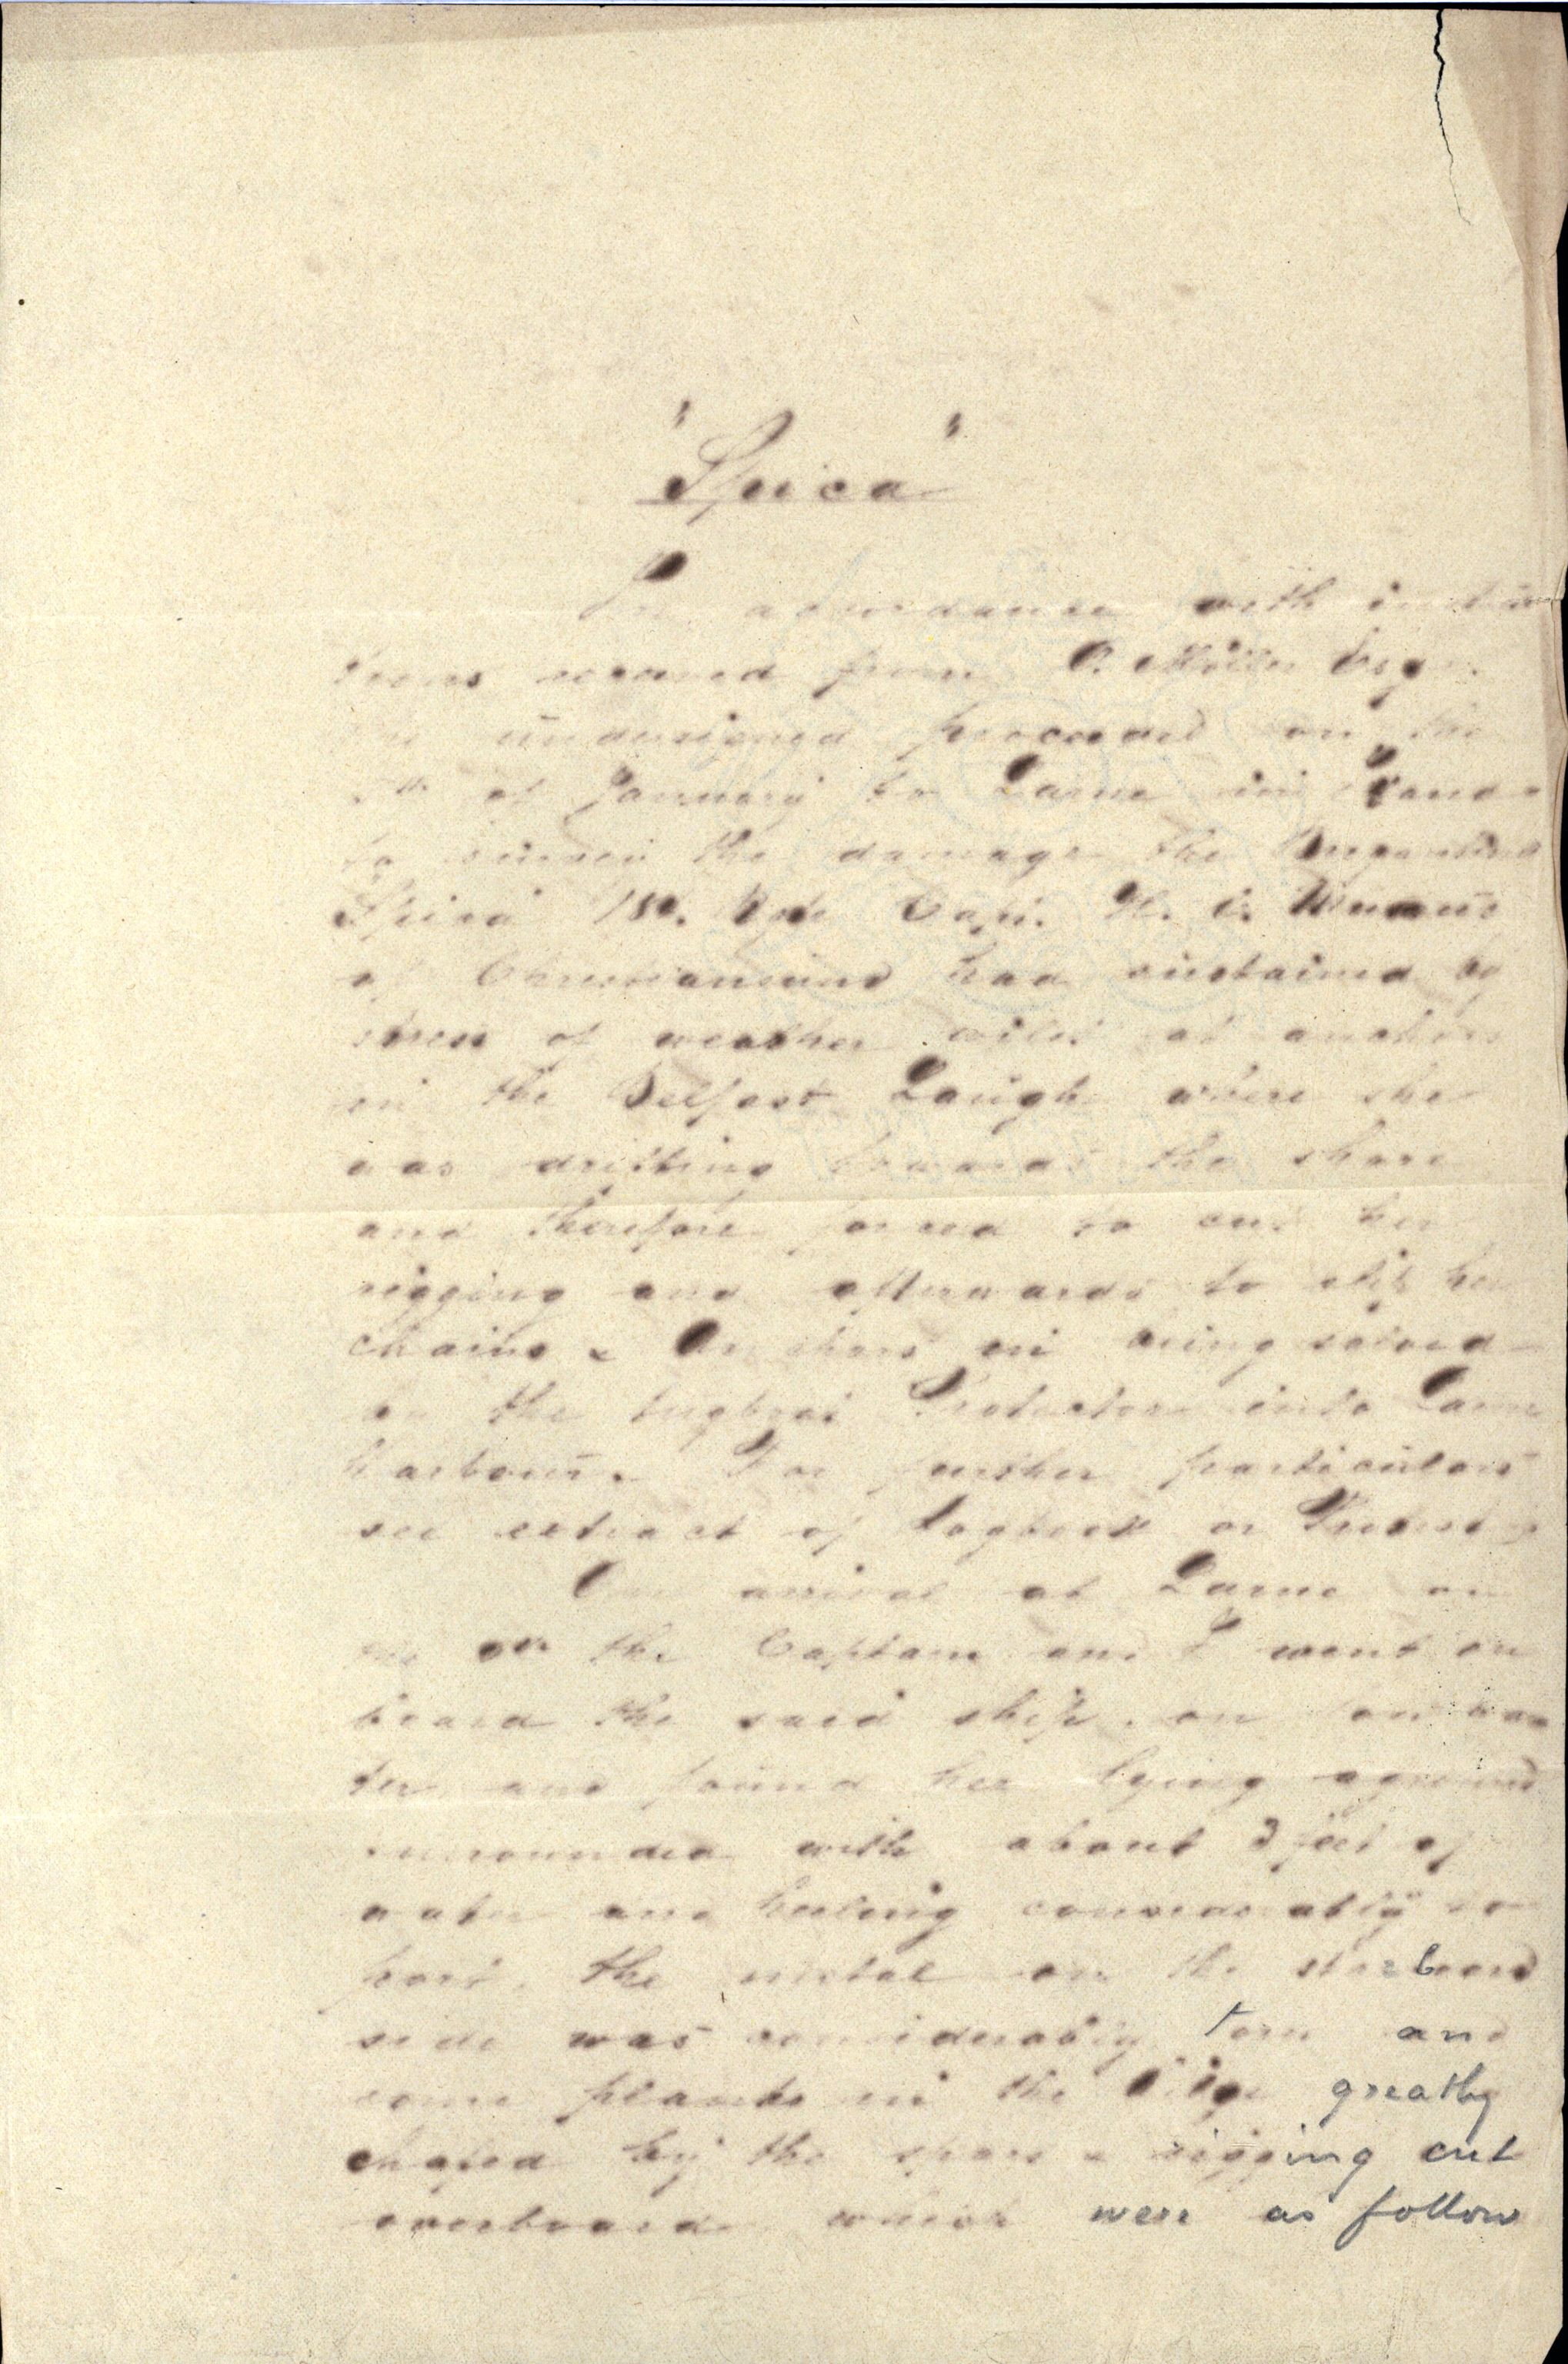 "Spica"
In accordance with instruc
tions received from O. Möller Esqr.
the undersigned proceeded on the
of January to Larne in
to survey the damage the
Spica Capt. H. C.
of Christiansund had sustained by
stress of weather whilst at anchor
in the Belfast Lough where she
was drifting towards the shore
and therefore forced to cut her
rigging and afterwards to slip her
chains & Anchors on being towed
by the tugboat Protector into Larne
harbour. For further particulars
see extract of Logbook or Protest
On arrival at Larne on
the the Captain and I went on
board the said ship, on low wa
ter and found her lying aground
surrounded with about 3 feet of
water and heeling considerably to
port, the metal on the starboard
side was considerably torn and
some planks in the bilge greatly
chafed by the spars & rigging cut
overboard which were as follow